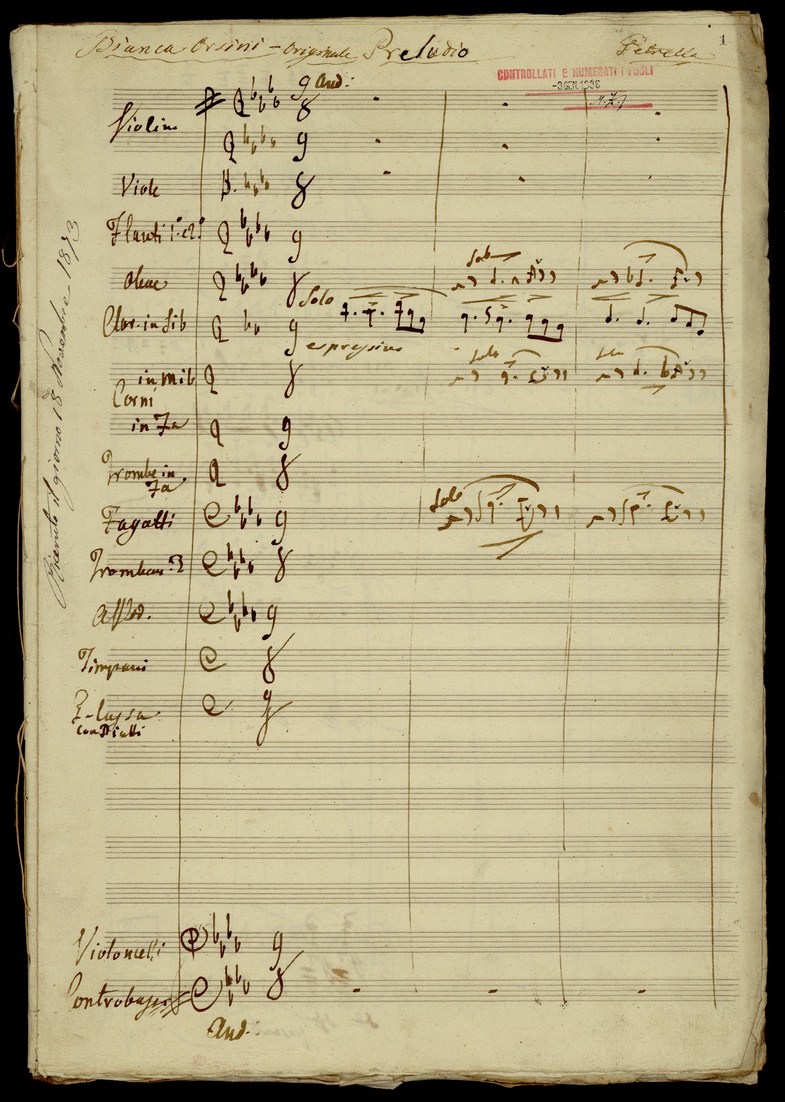 Bianca Orsini - Originale Preludio Petrella
1
CONTROLLATI E NUMERATI I FOGLI
And:
Violini
Viole
Flauti 1º e 2º
Oboe
Solo
Clar. in Sib
Solo
espressivo
in mib
Solo
Solo
Corni
in Fa
Trombe in
Fa
Fagotti
Solo
Tromboni
Timpani
G-Cassa
con Piatti
Violoncelli
Contrabassi
And.
il giorno 18 Novembre 1873